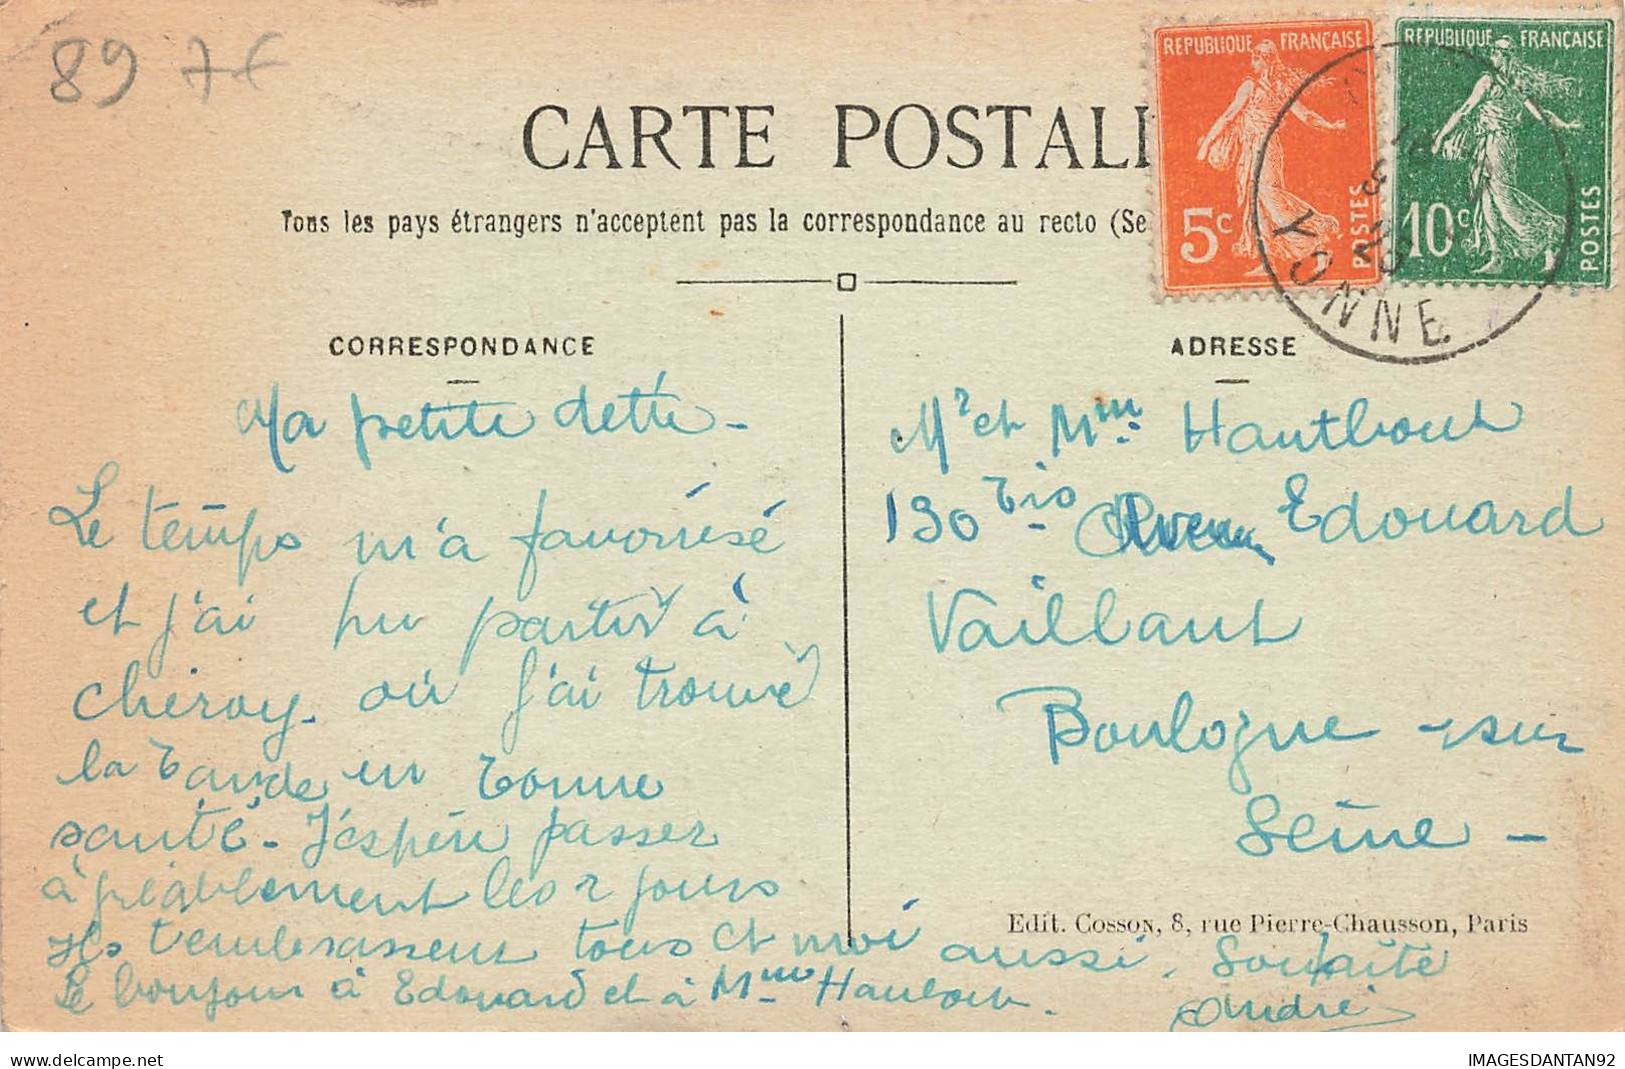 89 7€
REPUBLIQUE FRANÇAISE
5c
POSTES
REPUBLIQUE FRANÇAISE
10c
POSTES
YONNE
CARTE POSTAL
Tous les pays étrangers n'acceptent pas la correspondance au recto (Se
CORRESPONDANCE
ADRESSE
Ma petite dette -
Le temps m'a favorisé
et j'ai pu partir à
cheroy. où j'ai trouvé
la bande en bonne
santé - J'espère passer
agréablement les 2 jours
Ils t'embrassent tous et moi aussi. Souhaite
Le bonjour à Edouard et à Mme
André
Mr et Mme
130 bis Edouard
Vaillant
Boulogne - sur
Seine -
Edit. Cosson, 8, rue Pierre-Chausson, Paris
IMAGESDANTAN92